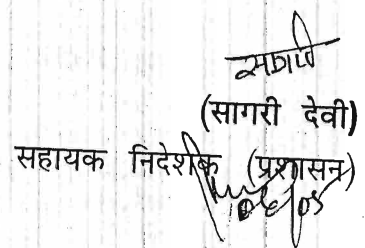 (सागरी देवी)
सहायक निदेशक (प्रशासन)